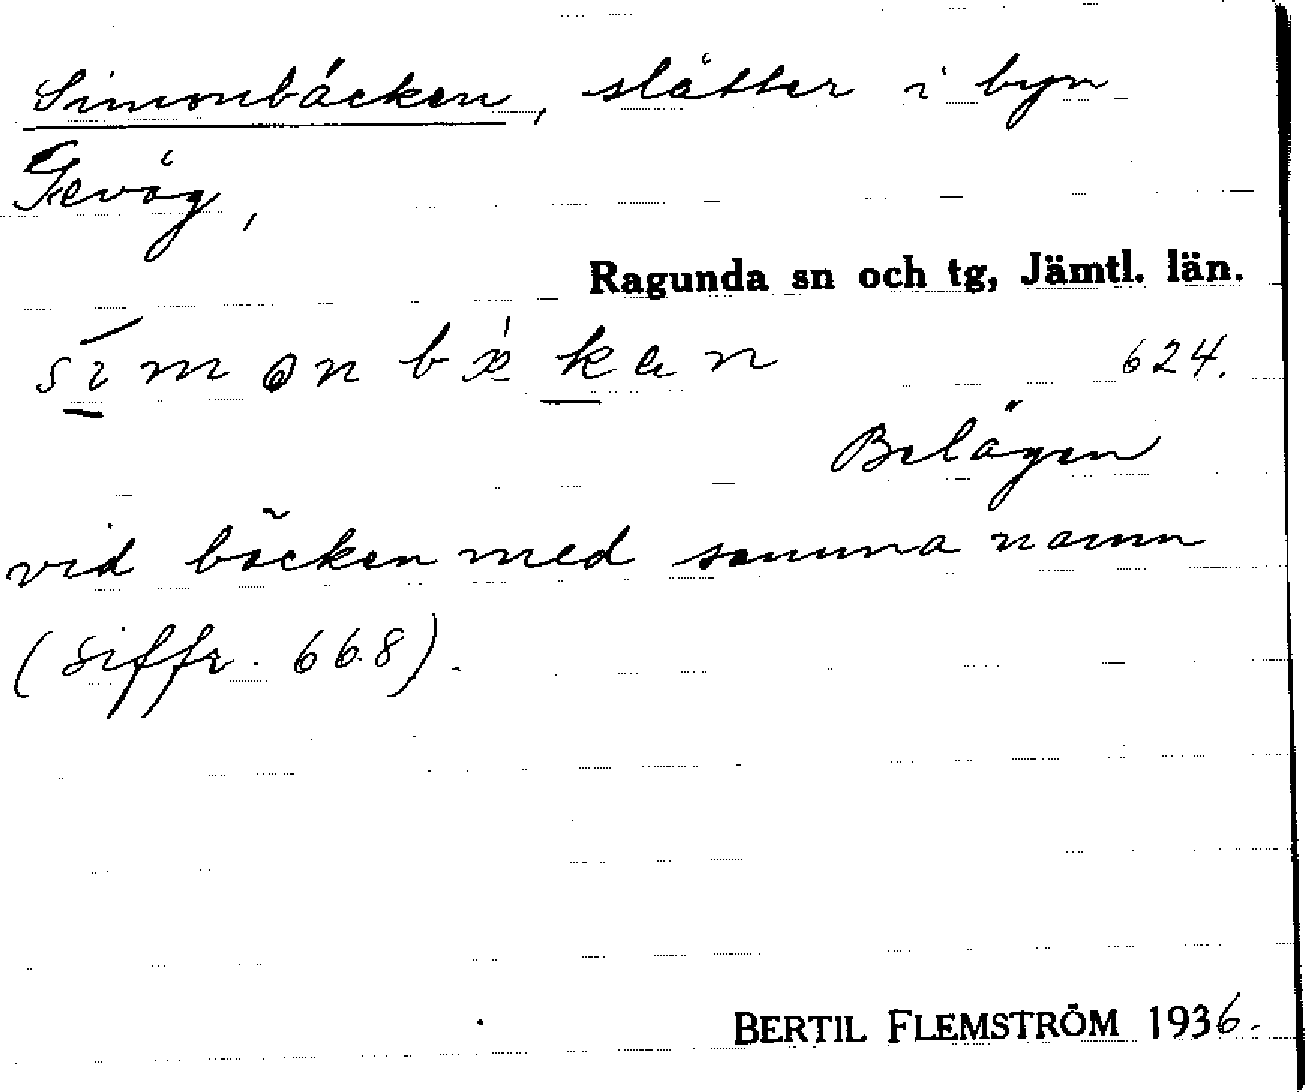 Simonbäcken, slåtter i byn
Gevåg,
Ragunda sn och tg, Jämtl. län.
simonbæ̀ken 624.
Belägen
vid bäcken med samma namn
(siffr. 668).
BERTIL FLEMSTRÖM 1936.